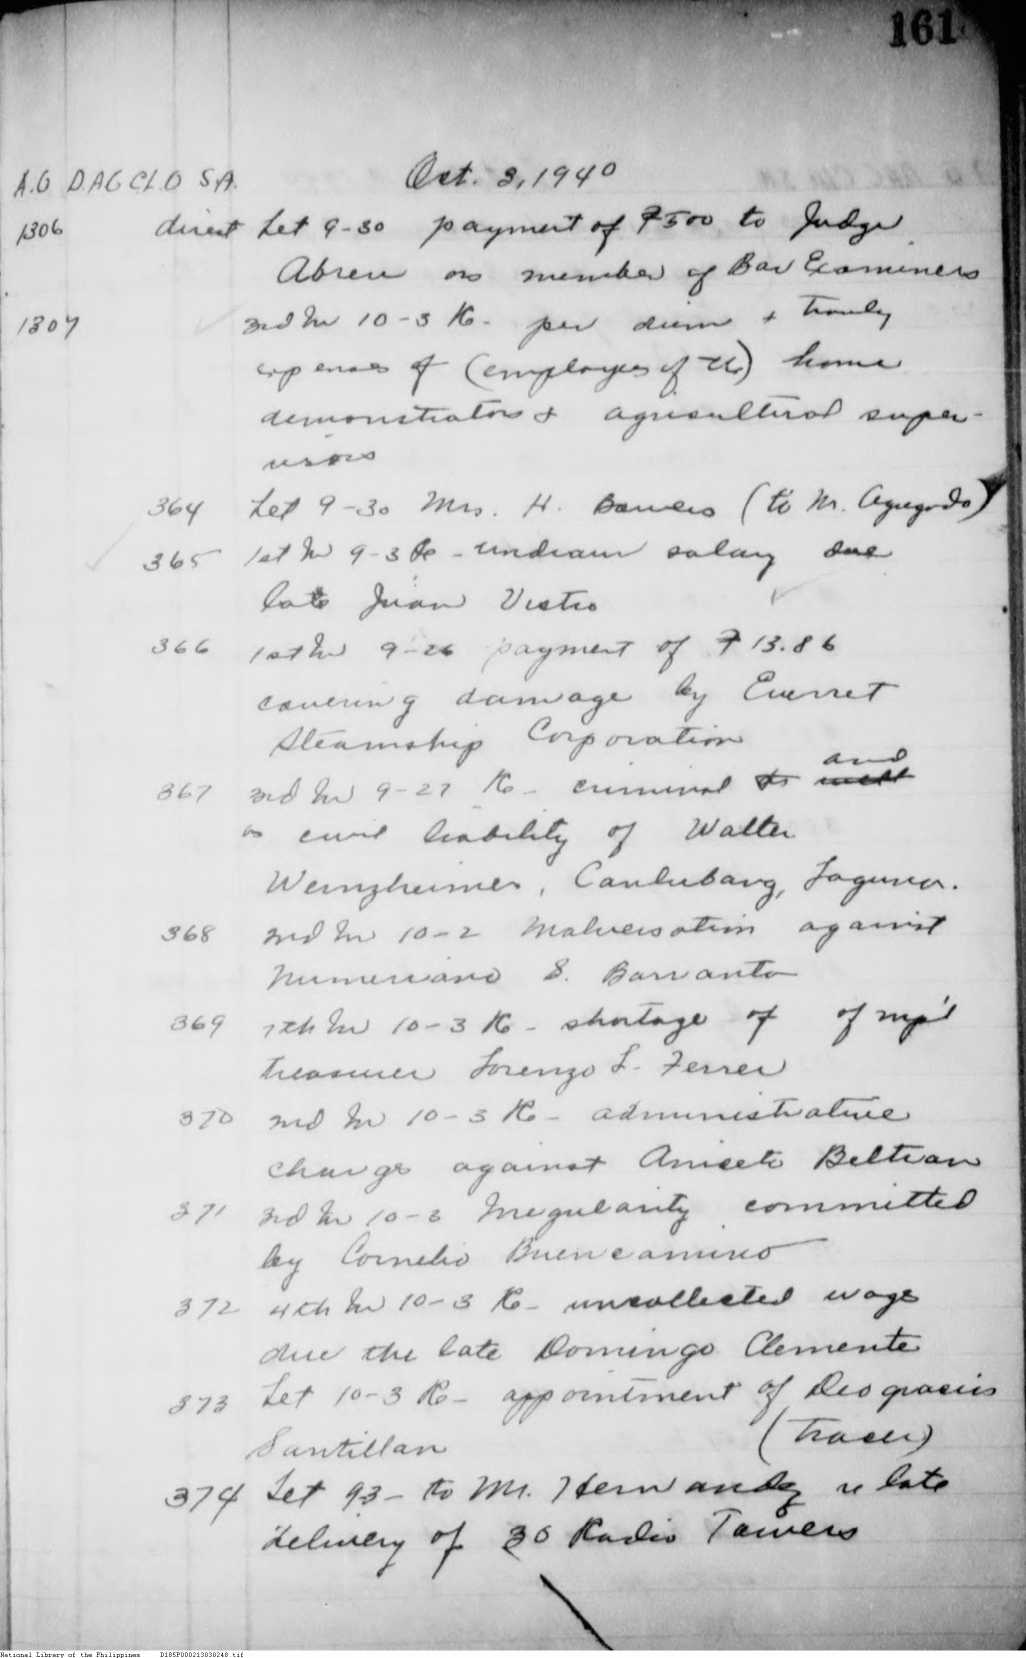 161
A.G DAG CLO SA. Oct. 3, 1940
1306 direct Let 9-30 payment of ₱500 to Judge
Abreu as member of Bar Examiners
1307 3rd In 10-3 Re- per diem & travlg
expenses of (employees of the) home
demonstrators & agricultural super-
visors
364 Let 9-30 Mrs. H. Bowers (to Mr. Agregado)
365 1st In 9-3 Re - undrawn salary due
late Juan Vistro
366 1st In 9-26 payment of ₱13.86
covering damage by Everret
Steamship Corporation
and
367 3rd In 9-27 Re- criminal as well
as civil liability of Walter
Weinzheimer, Canlubang, Laguna.
368 2nd In 10-2 Malversation against
Numeriano S. Barranta
369 7th In 10-3 Re- shortage of of mp'l
treasurer Lorenzo L. Ferrer
370 2nd In 10-3 Re- administrative
charge against Aniceto Beltran
371 3rd In 10-3 Irregularity committed
by Cornelio Buencamino
372 4th In 10-3 Re- uncollected wage
due the late Domingo Clemente
373 Let 10-3 Re- appointment of Deogracias
Santillan (tracer)
374 Let 93- to Mr. Hernandez re late
delivery of 30 Radio Towers
National Library of the Philippines D185P000213838248.tif